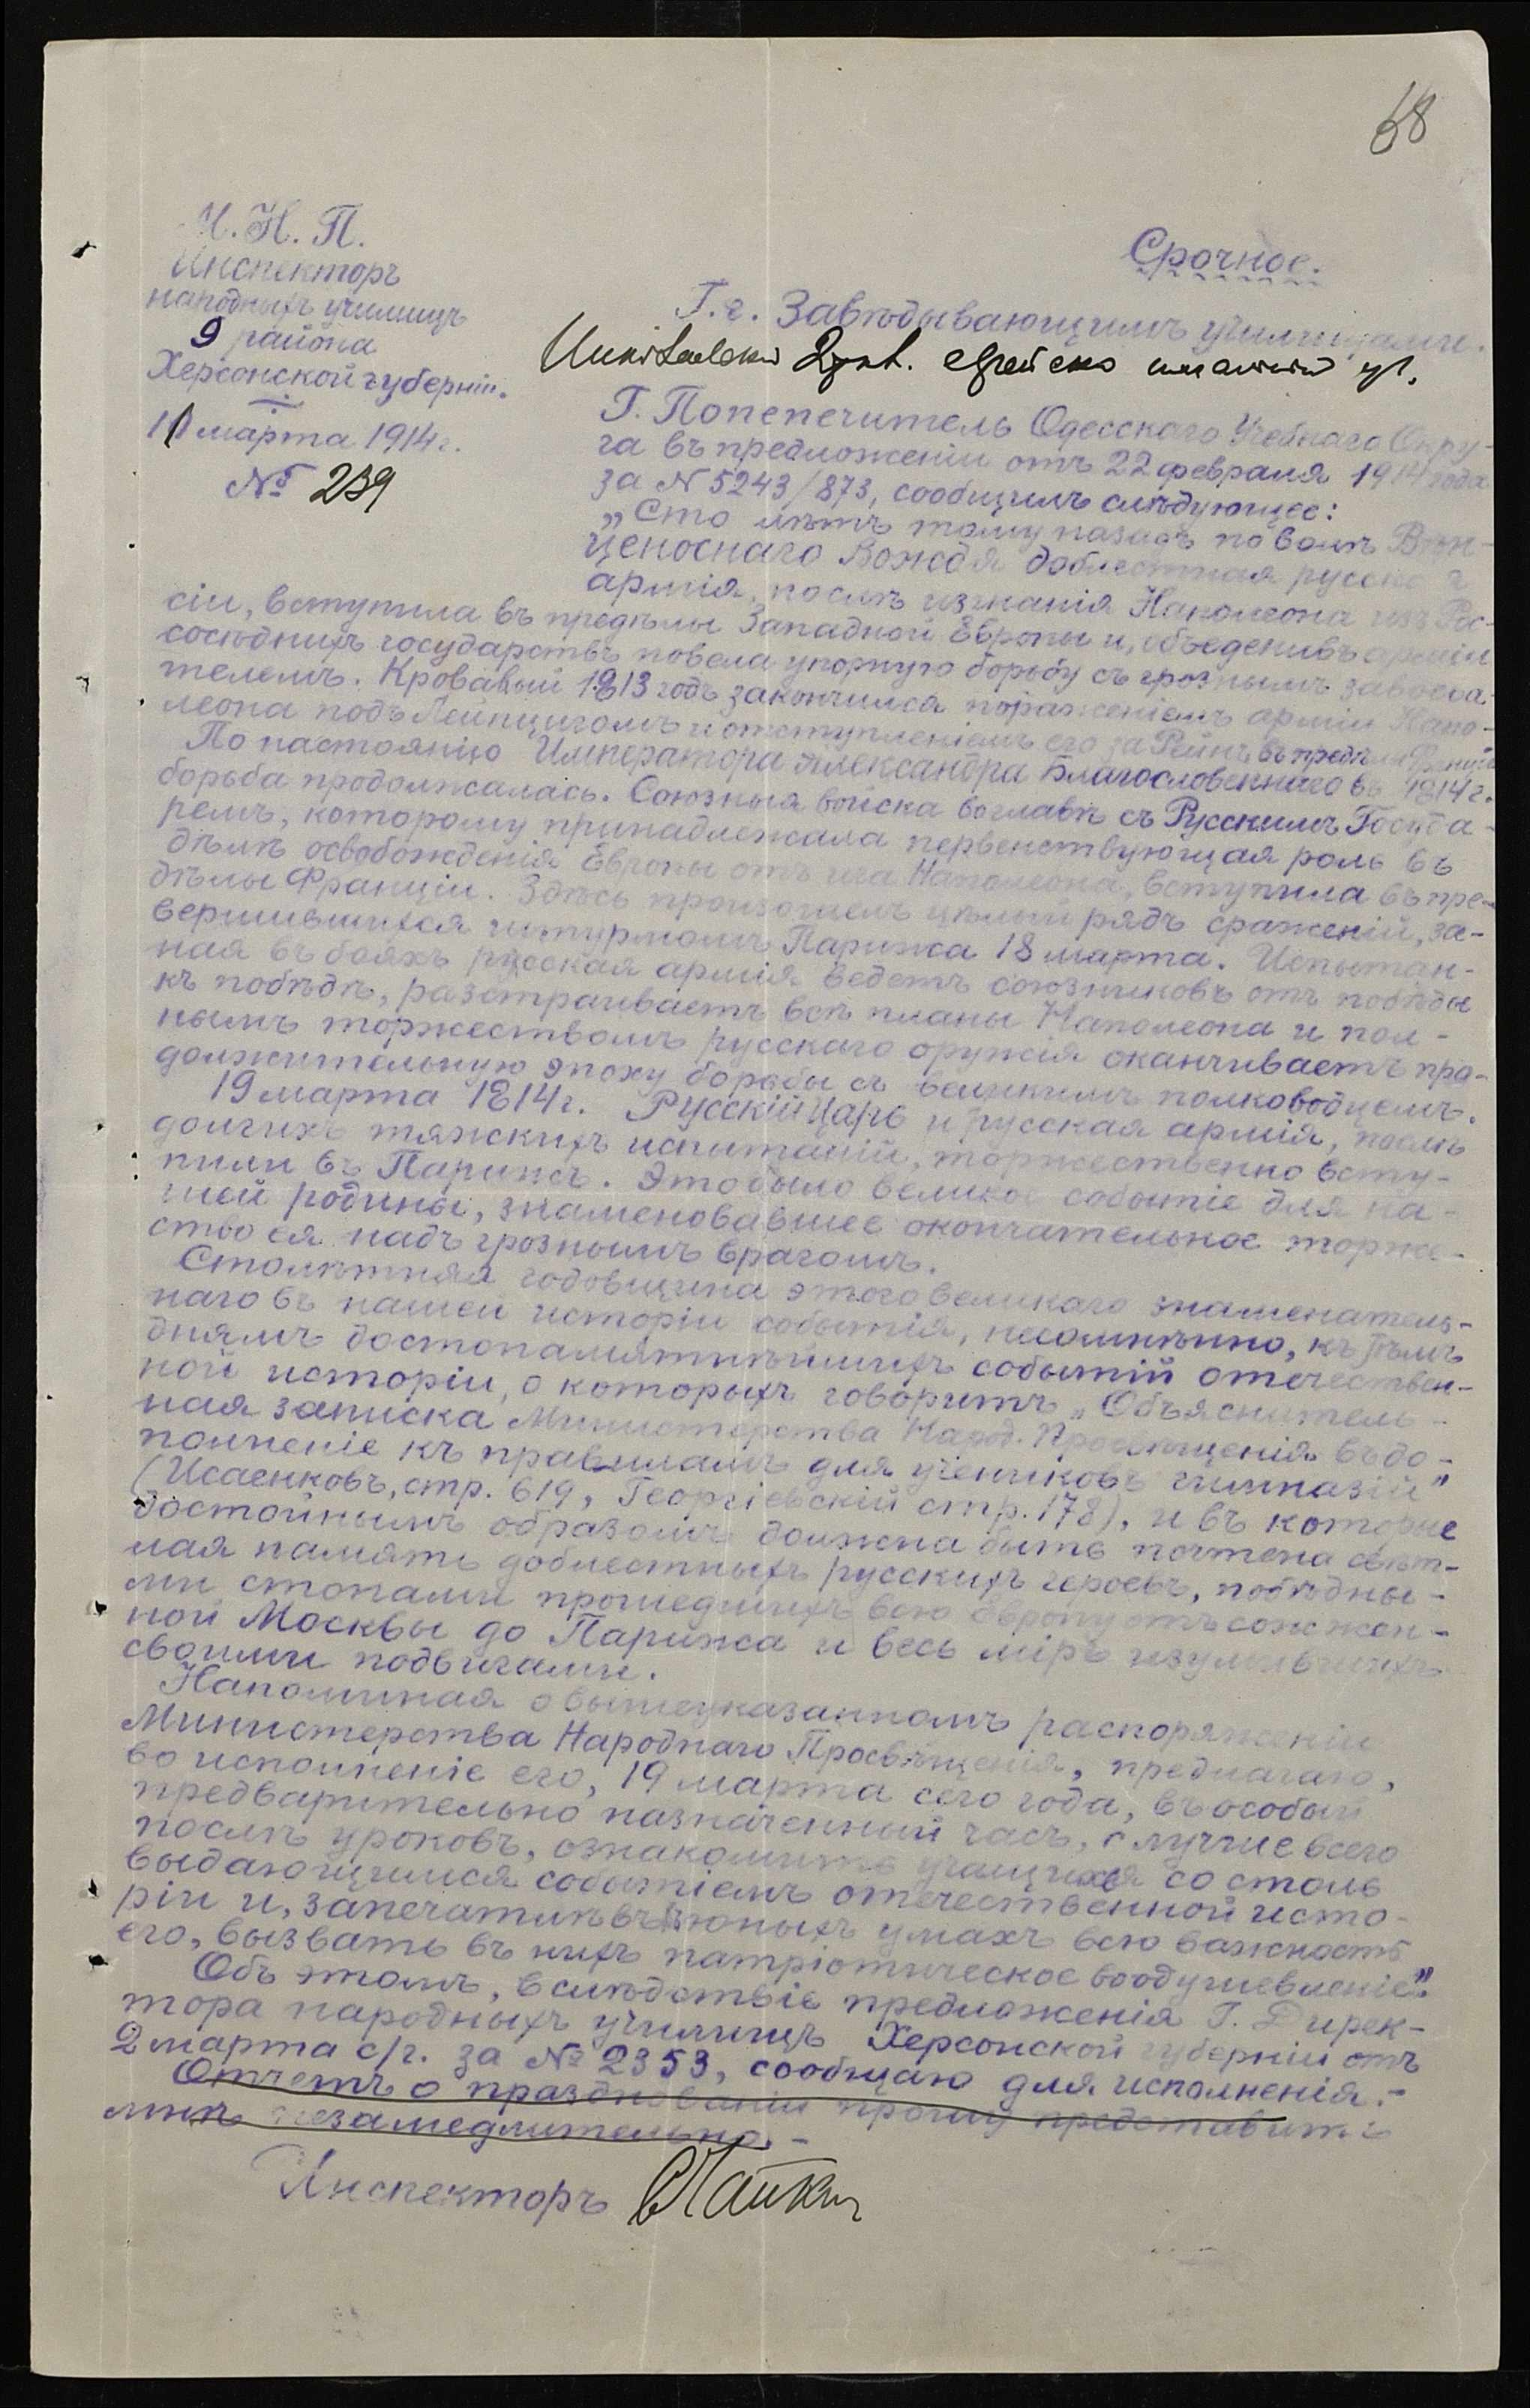 68
М. Н. П.
Инспекторъ
народныхъ училищъ
9 района
Херсонской губерніи.
11 марта 1914 г.
№ 239
Срочное.
Г.г. Завѣдывающимъ училищами.
Г. Попепечитель Одесскаго Учебнаго Окру-
га въ предложеніи отъ 22 февраля 1914 года
за N 5243/873, сообщилъ слѣдующее:
„Сто лѣтъ тому назадъ по волѣ Вѣн-
ценоснаго Вождя доблестная русская
армія, послѣ изгнанія Наполеона изъ Рос-
сіи, вступила въ предѣлы Западной Европы и, объеденивъ арміи
сосѣднихъ государствъ повела упорную борьбу съ грознымъ завоева-
телемъ. Кровавый 1813 годъ закончился пораженіемъ арміи Напо-
леона подъ Лейпцигомъ и отступленіемъ его за Рейнъ въ предѣлы Франціи
По настоянію Императора Александра Благословеннаго въ 1814 г.
борьба продолжалась. Союзныя войска во главѣ съ Русскимъ Госуда-
ремъ, которому принадлежала первенствующая роль въ
дѣлѣ освобожденія Европы отъ ига Наполеона, вступила въ пре-
дѣлы Франціи. Здѣсь произошелъ цѣлый рядъ сраженій, за-
вершившихся штурмомъ Парижа 18 марта. Испытан-
ная въ бояхъ русская армія ведетъ союзниковъ отъ побѣды
къ побѣдѣ, разстраиваетъ всѣ планы Наполеона и пол-
нымъ торжествомъ русскаго оружія оканчиваетъ про-
должительную эпоху борьбы съ великимъ полководцемъ.
19 марта 1814 г. Русскій Царь и русская армія, послѣ
долгихъ тяжкихъ испытаній, торжественно всту-
пили въ Парижъ. Это было велико событіе для на-
шей родины, знаменовавшее окончательное торже-
ство ея надъ грознымъ врагомъ.
Столѣтняя годовщина этого великаго знаменатель-
наго въ нашей исторіи событія, несомнѣнно, къ тѣмъ
днямъ достопамятнѣйшихъ событій отечествен-
ной исторіи, о которыхъ говоритъ „Объяснитель-
ная записка Министерства Народ. Просвѣщенія въ до-
полненіе къ правиламъ для учениковъ гимназій"
(Исаенковъ, стр. 619, Георгіевскій стр. 178), и въ которые
достойнымъ образомъ должна быть почтена свѣт-
лая память доблестныхъ русскихъ героевъ, побѣдны-
ми стопами прошедшихъ всю Европу отъ сожжен-
ной Москвы до Парижа и весь міръ изумившихъ
своими подвигами.
Напоминая о вышеуказанномъ распоряженіи
Министерства Народнаго Просвѣщенія, предлагаю,
во исполненіе его, 19 марта сего года, въ особый
предварительно назначенный часъ, лучше всего
послѣ уроковъ, ознакомить учащихся со столь
выдающимся событіемъ отечественной исто-
ріи и, запечатлѣвъ въ юныхъ умахъ всю важность
его, вызвать въ нихъ патріотическое воодушевленіе".
Объ этомъ, вслѣдствіе предложенія Г. Дирек-
тора народныхъ училищъ Херсонской губерніи отъ
2 марта с/г. за № 2353, сообщаю для исполненія.-
Отчетъ о празднованіи прошу представить
мнѣ незамедлительно.-
Инспекторъ